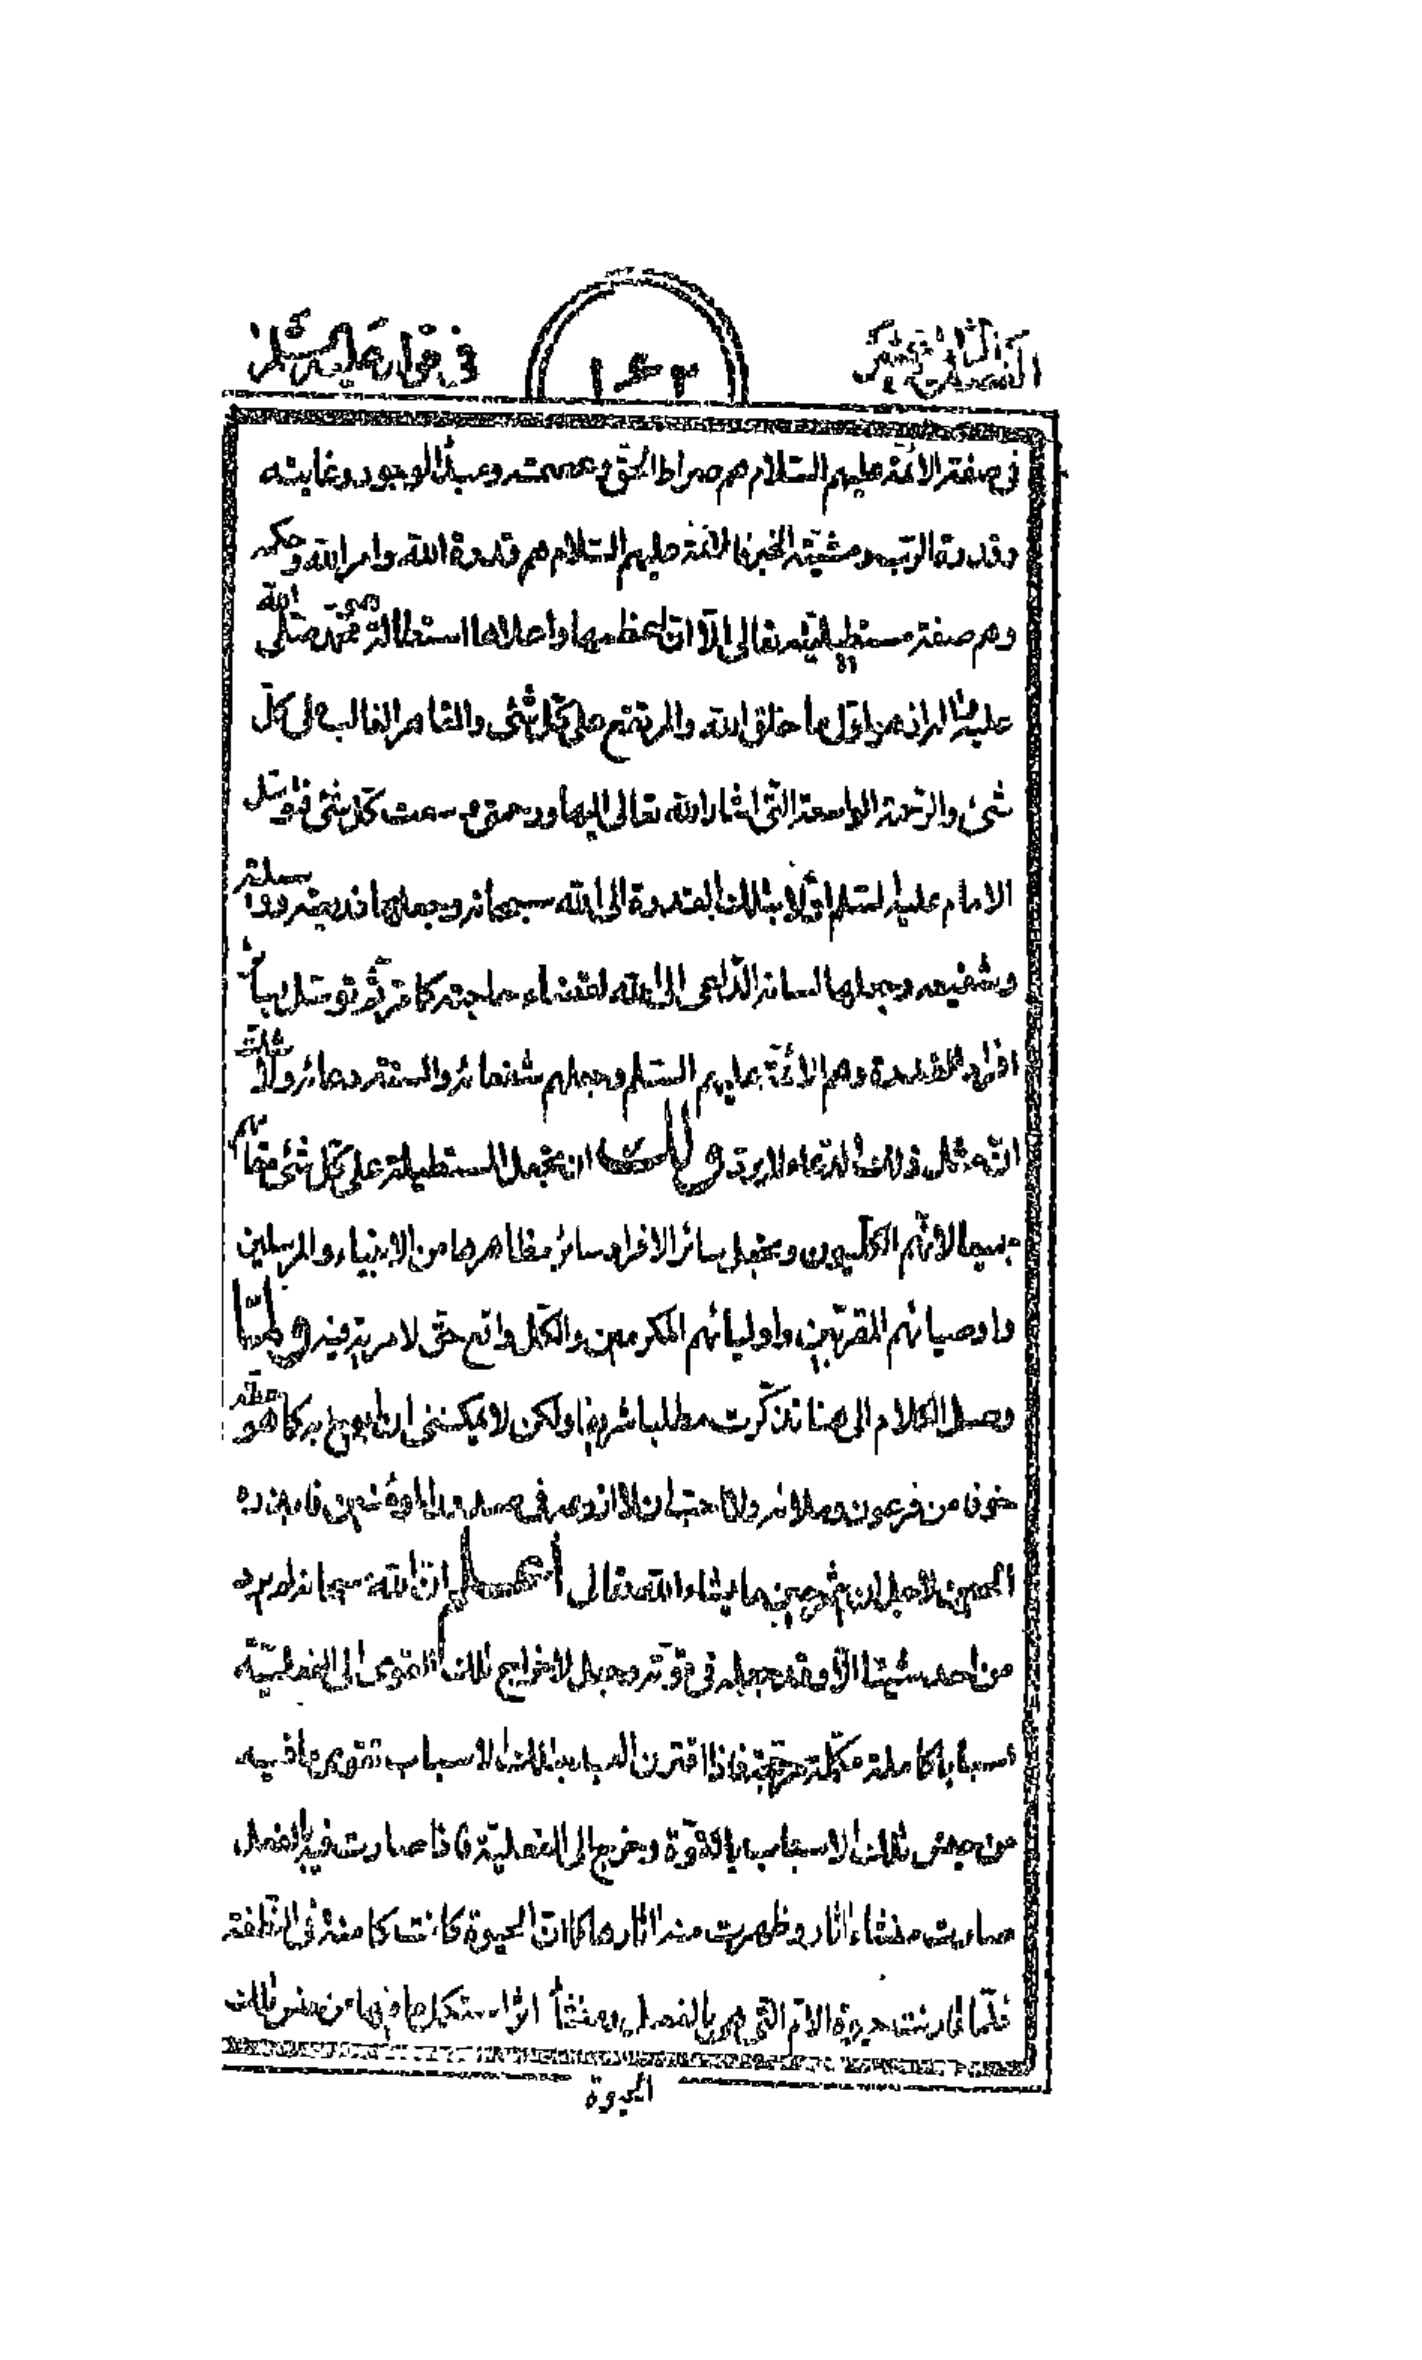 في قوله عليه السلام
في صفة الائمة عليهم السلام هم صراط الحق وعصمته ومبدأ الوجود وغايته
وقدرة الرب ومشيته الخبر فالائمة عليهم السلام هم قدرة الله وامر الله وحكمه
وهم صفة مستطيلة لله تعالى الا ان اعظمها واعلاها استطالة محمد صلى الله
عليه واله لانه هو اول ما خلق الله والمرتفع على كل شئ والقاهر الغالب على كل
شئ والرحمة الواسعة التي اشار الله تعالى اليها ورحمتي وسعت كل شئ فتوسل
الامام عليه السلم اولا بتلك القدرة الى الله سبحانه وجعلها ذريعته ووسيلته
وشفيعه وجعلها لسانه الداعي الى الله لقضاء حاجته كما مر ثم توسل بباقي
افراد القدرة وهم الائمة عليهم السلم وجعلهم شفعائه والسنة دعائه ولا شك
ان مثل ذلك الدعاء لا يرد ولك ان تجعل المستطيلة على كل شئ مقامهم
جميعا لانهم الكليون وتجعل سائر الافراد سائر مظاهرها من الانبياء والمرسلين
واوصيائهم المقربين واوليائهم المكرمين والكل واقع حق لا مرية فيه ولما
وصل الكلام الى هنا تذكرت مطلبا شريفا ولكن لا يمكنني ان ابوح به كما هو حقه
خوفا من فرعون وملائه ولا احب ان لا ازرعه في صدور المؤمنين فابذره
الحين لاهله ان يثمر حين ما يشاء الله تعالى اعلم ان الله سبحانه لم يرد
من احد شيئا الا وقد جعله في قوته وجعل لاخراج تلك القوى الى الفعلية
اسبابا كاملة مكملة فاذا اقترن العبد بتلك الاسباب تقوى ما فيه
من جنس تلك الاسباب بالقوة ويخرج الى الفعلية فاذا صارت فيه بالفعل
صارت منشاء اثار وظهرت منه اثارها كما ان الحيوة كانت كامنة في النطفة
فلما قارنت حيوة الام التي هي بالفعل ومنشأ اثر استكمل ما فيها من جنس تلك
الحيوة